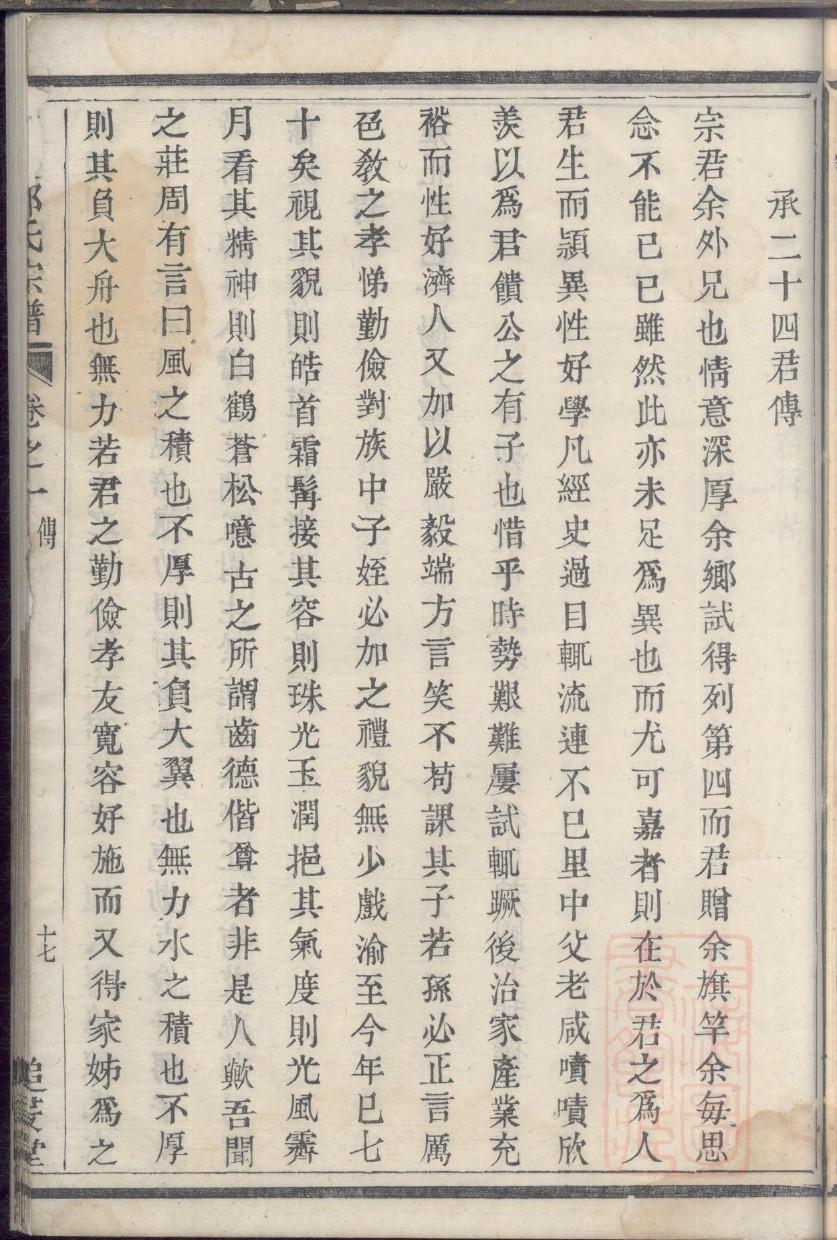 承二十四君傳
宗君余外兄也情意深厚余鄉試得列第四而君贈余旗竿余每思
念不能已已雖然此亦未足爲異也而尤可嘉者則在於君之爲人
君生而頴異性好學凡經史過目輒流連不已里中父老咸嘖嘖欣
羨以爲君饋公之有子也惜乎時勢艱難屢試輒蹶後治家產業充
裕而性好濟人又加以嚴毅端方言笑不苟課其子若孫必正言厲
色敎之孝悌勤儉對族中子姪必加之禮貌無少戲渝至今年已七
十矣視其貌則皓首霜髯接其容則珠光玉潤挹其氣度則光風霽
月看其精神則白鶴蒼松噫古之所謂齒德偕尊者非是人歟吾聞
之莊周有言曰風之積也不厚則其負大翼也無力水之積也不厚
則其負大舟也無力若君之勤儉孝友寬容好施而又得家姊爲之
氏宗譜 卷之一 傳 十七 堂